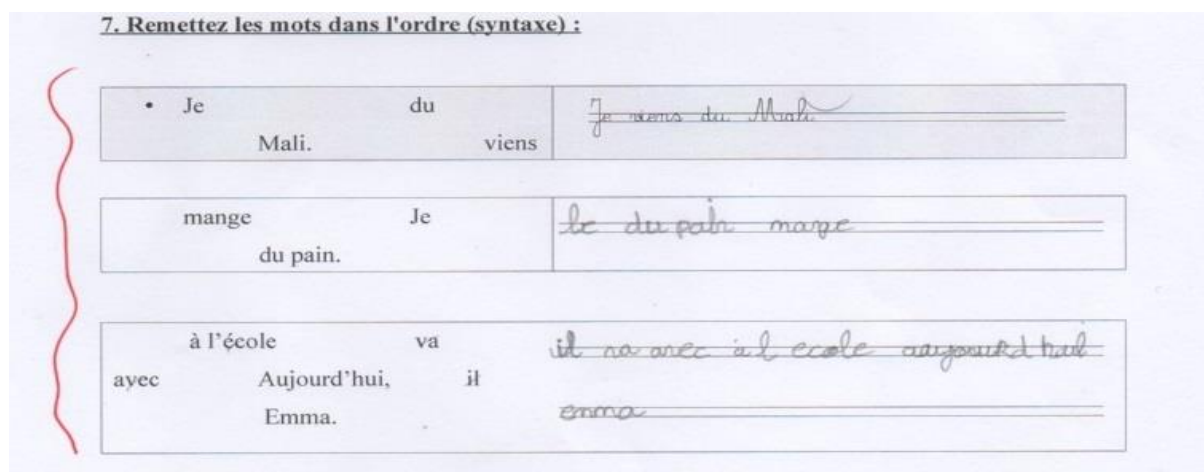 7. Remettez les mots dans l'ordre (syntaxe) :
• Je du
Mali. viens
Je viens du Mali
mange Je
du pain.
le du pain mange
à l'école va
avec Aujourd'hui, il
Emma.
il va avec à l ecole
emma